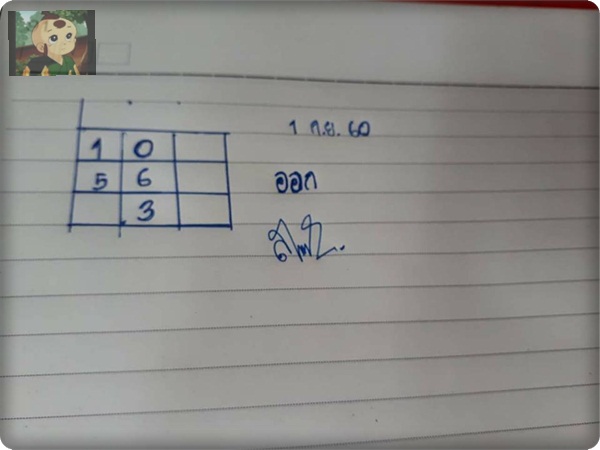 1 ก.ย. 60
1 0
5 6
3
ออก